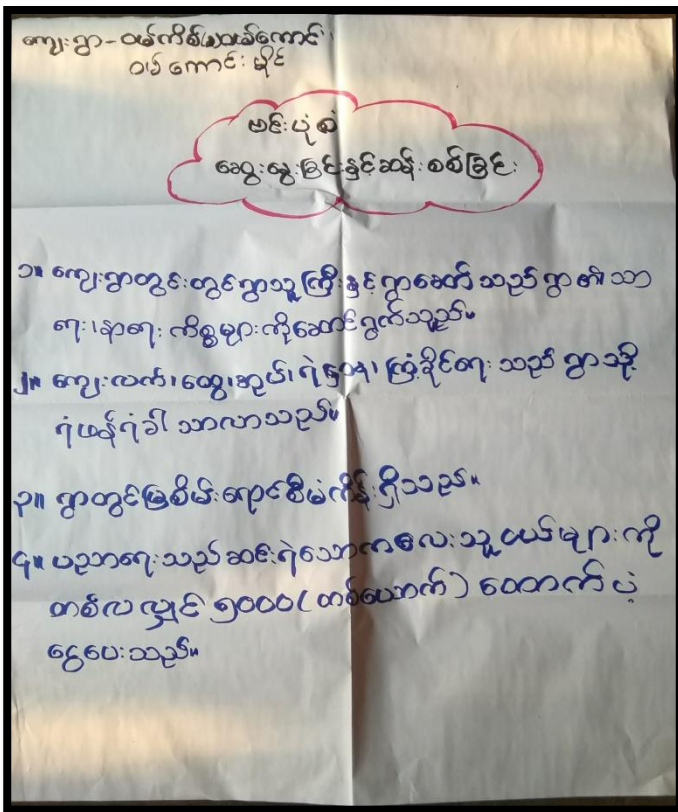 ကျေးရွာ-ဝမ်ကိစ်မွယမ်ကောင်း၊
ဝမ်ကောင်းမိုင်
ဗင်းပုံစံ
ဆွေးနွေးခြင်းနှင့်ဆန်းစစ်ခြင်း
၁။ ကျေးရွာတွင်းတွင်ရွာသူကြီးနှင့်ရွာခေတ်သည်ရွာ၏သာ
ရေး၊နာရေးကိစ္စများကိုဆောင်ရွက်သည်။
၂။ ကျေးလက်၊ထွေ၊အုပ်၊ရဲဌာန၊ကြံ့ခိုင်ရေးသည်ရွာသို့
ရံဖန်ရံခါသာလာသည်။
၃။ ရွာတွင်မြစိမ်းရောင်စီမံကိန်းရှိသည်။
၄။ ပညာရေးသည်ဆင်းရဲသောကလေးသူငယ်များကို
တစ်လလျှင်၅၀၀၀(တစ်ယောက်)ထောက်ပံ့
ငွေပေးသည်။